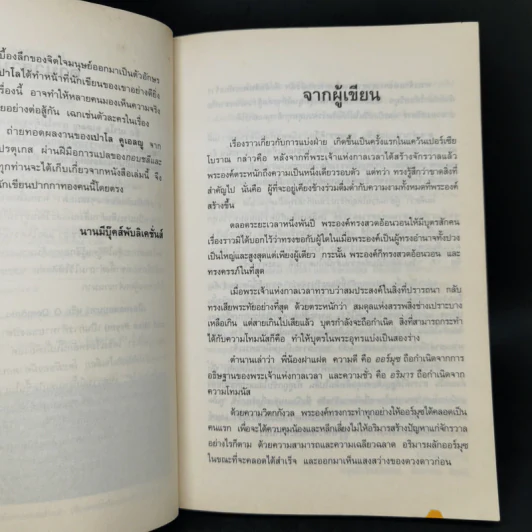 เบื้องลึกของจิตใจมนุษย์ออกมาเป็นตัวอักษร
เปาโลได้ทำหน้าที่นักเขียนของเขาอย่างดียิ่ง
เรื่องนี้ อาจทำให้หลายคนมองเห็นความจริง
อย่างต่อสู้กัน เฉกเช่นตัวละครในเรื่อง
ถ่ายทอดผลงานของเปาโล คูเอลญู จาก
ปรตุเกส ผ่านฝีมือการแปลของกอบชลีและ
ทุกท่านจะได้เก็บเกี่ยวจากหนังสือเล่มนี้ จึง
นักเขียนปากกาทองคนนี้โดยตรง
นานมีบุ๊คส์พับลิเคชั่นส์
จากผู้เขียน
เรื่องราวเกี่ยวกับการแบ่งฝ่าย เกิดขึ้นเป็นครั้งแรกในแคว้นเปอร์เซีย
โบราณ กล่าวคือ หลังจากที่พระเจ้าแห่งกาลเวลาได้สร้างจักรวาลแล้ว
พระองค์ตระหนักถึงความเป็นหนึ่งเดียวรอบตัว แต่ทว่า ทรงรู้สึกว่าขาดสิ่งที่
สำคัญไป นั่นคือ ผู้ที่จะอยู่เคียงข้างร่วมดื่มด่ำกับความงามทั้งหมดที่พระองค์
สร้างขึ้น
ตลอดระยะเวลาหนึ่งพันปี พระองค์ทรงสวดอ้อนวอนให้มีบุตรสักคน
เรื่องราวมิได้บอกไว้ว่าทรงขอกับผู้ใดในเมื่อพระองค์เป็นผู้ทรงอำนาจทั้งปวง
เป็นใหญ่และสูงสุดแต่เพียงผู้เดียว กระนั้น พระองค์ก็ทรงสวดอ้อนวอน และ
ทรงครรภ์ในที่สุด
เมื่อพระเจ้าแห่งกาลเวลาทราบว่าสมประสงค์ในสิ่งที่ปรารถนา กลับ
ทรงเสียพระทัยอย่างที่สุด ด้วยตระหนักว่า สมดุลแห่งสรรพสิ่งช่างเปราะบาง
เหลือเกิน แต่สายเกินไปเสียแล้ว บุตรกำลังจะถือกำเนิด สิ่งที่สามารถกระทำ
ได้กับความโทมนัสก็คือ ทำให้บุตรในพระอุทรแบ่งเป็นสองร่าง
ตำนานเล่าว่า พี่น้องฝาแฝด ความดี คือ ออร์มุซ ถือกำเนิดจากการ
อธิษฐานของพระเจ้าแห่งกาลเวลา และความชั่ว คือ อริมาร ถือกำเนิดจาก
ความโทมนัส
ด้วยความวิตกกังวล พระองค์ทรงกระทำทุกอย่างให้ออร์มุซได้คลอดเป็น
คนแรก เพื่อจะได้ควบคุมน้องและหลีกเลี่ยงไม่ให้อริมารสร้างปัญหาแก่จักรวาล
อย่างไรก็ตาม ด้วยความสามารถและความเฉลียวฉลาด อริมารผลักออร์มุซ
ในขณะที่จะคลอดได้สำเร็จ และออกมาเห็นแสงสว่างของดวงดาวก่อน